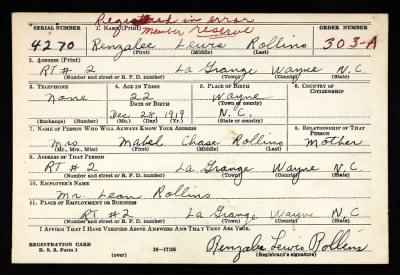 Registered in error
member reserve
SERIAL NUMBER 1. NAME (Print) ORDER NUMBER
4270 Renzalee Lewis Rollins 303-A
(First) (Middle) (Last)
2. ADDRESS (Print)
RT # 2 La Grange Wayne N.C.
(Number and street or R. F. D. number) (Town) (County) (State)
3. TELEPHONE 4. AGE IN YEARS 5. PLACE OF BIRTH 6. COUNTRY OF CITIZENSHIP
None 22 Wayne
DATE OF BIRTH (Town or county)
Dec 28, 1919 N.C.
(Exchange) (Number) (Mo.) (Day) (Yr.) (State or country)
7. NAME OF PERSON WHO WILL ALWAYS KNOW YOUR ADDRESS 8. RELATIONSHIP OF THAT PERSON
Mrs Mabel Chase Rollins Mother
(Mr., Mrs., Miss) (First) (Middle) (Last)
9. ADDRESS OF THAT PERSON
RT # 2 La Grange Wayne N.C.
(Number and street or R. F. D. number) (Town) (County) (State)
10. EMPLOYER'S NAME
Mr. Leon Rollins
11. PLACE OF EMPLOYMENT OR BUSINESS
RT #2 La Grange Wayne N.C.
(Number and street or R. F. D. number) (Town) (County) (State)
I AFFIRM THAT I HAVE VERIFIED ABOVE ANSWERS AND THAT THEY ARE TRUE.
REGISTRATION CARD
D. S. S. Form 1 16-17105 Renzalee Lewis Rollins
(over) (Registrant's signature)